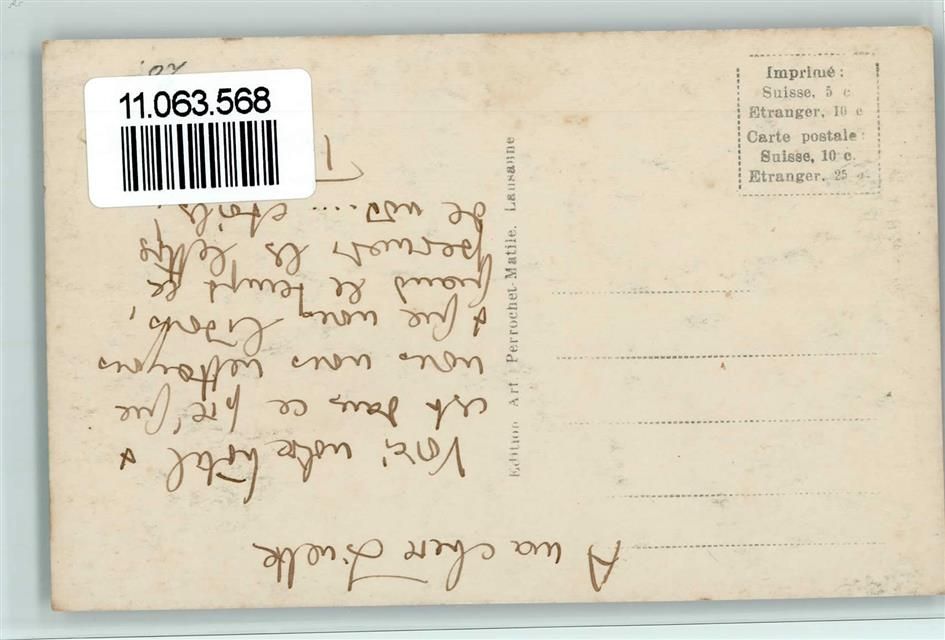 11.063.568
Imprimé :
Suisse, 5 c
Etranger, 10 c
Carte postale :
Suisse, 10 c.
Etranger, 25 c.
Edition Art. Perrochet-Matile, Lausanne
A ma chère
Voici notre hôtel &
c'est dans ce pré que
nous nous nettoyons
& que nous lisons,
quand le temps le
permet, les lettres
de nos ....